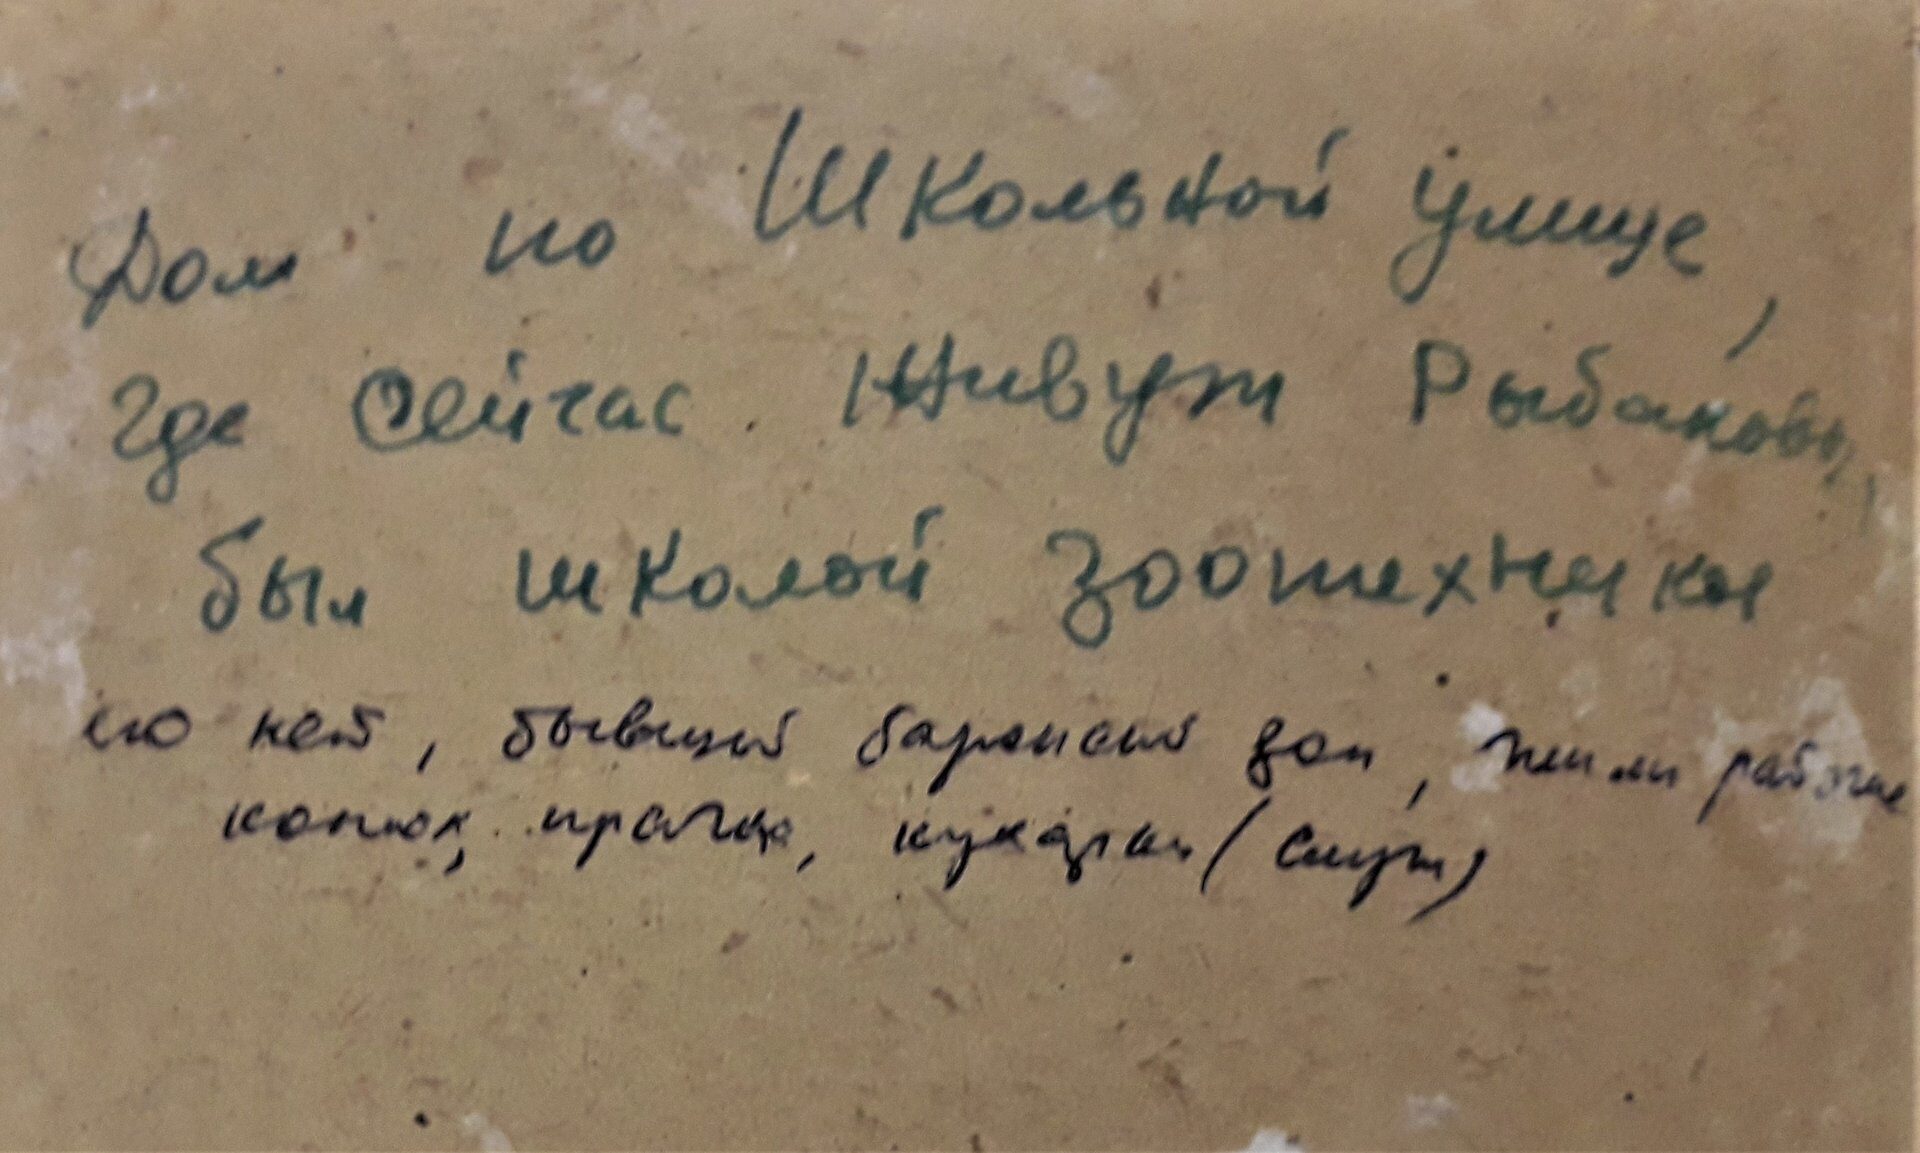 Дом по Школьной улице,
где сейчас живут Рыбаковы,
был школой зоотехники
бывший барский дом, жили рабочие
конюх, прачка, кухарки (слуги)